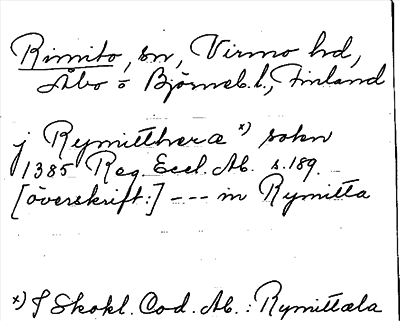 Rimito, sn, Virmo hd,
Åbo o Björneb. l., Finland
j Rymitthera x) sokn
1385 Reg. Eccl. Ab. s. 189.
[överskrift:] --- in Rymitta
x) I Skokl. Cod. Ab.: Rymittæla